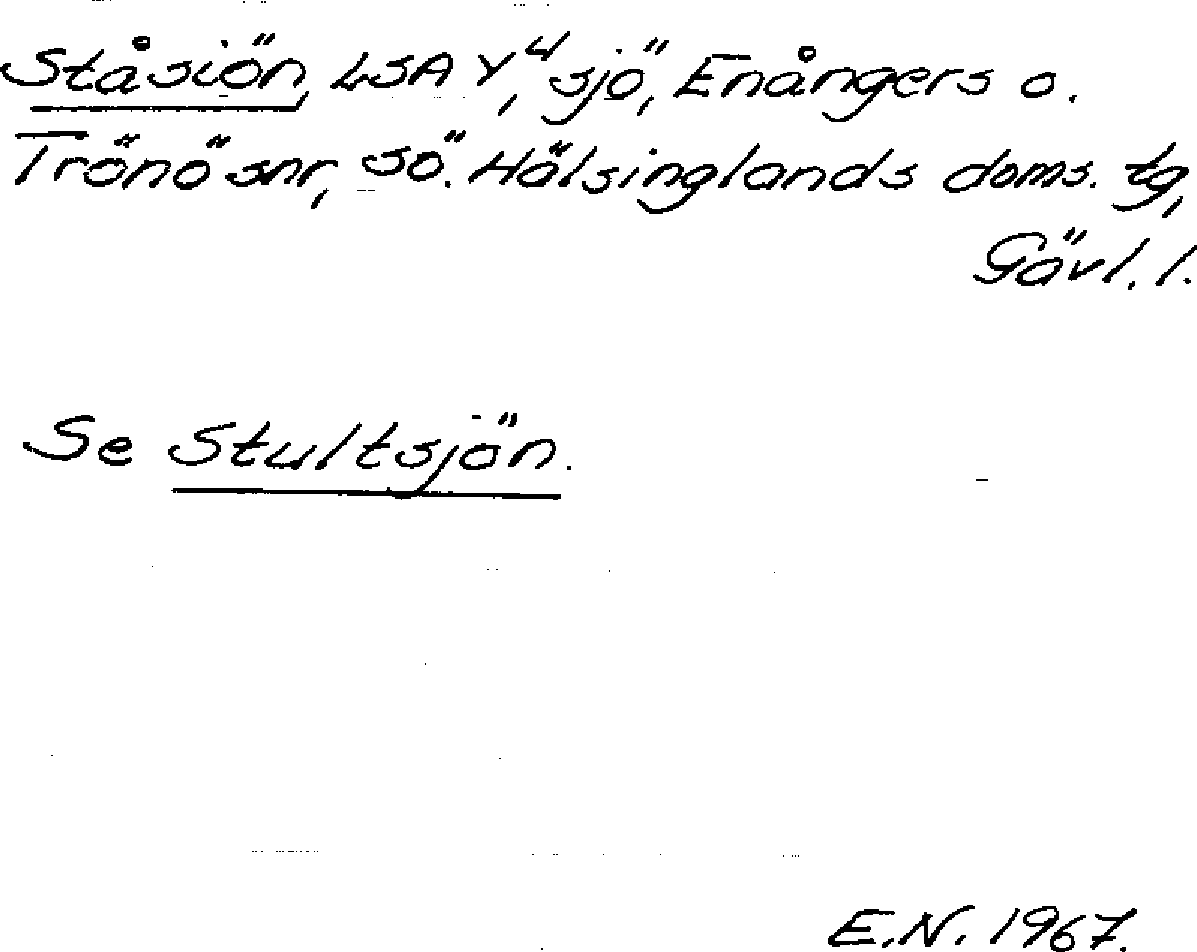 Ståsiön, LSA Y⁴, sjö, Enångers o.
Trönö snr, sö. Hälsinglands doms. tg,
Gävl. l.
Se Stultsjön.
E.N. 1967.